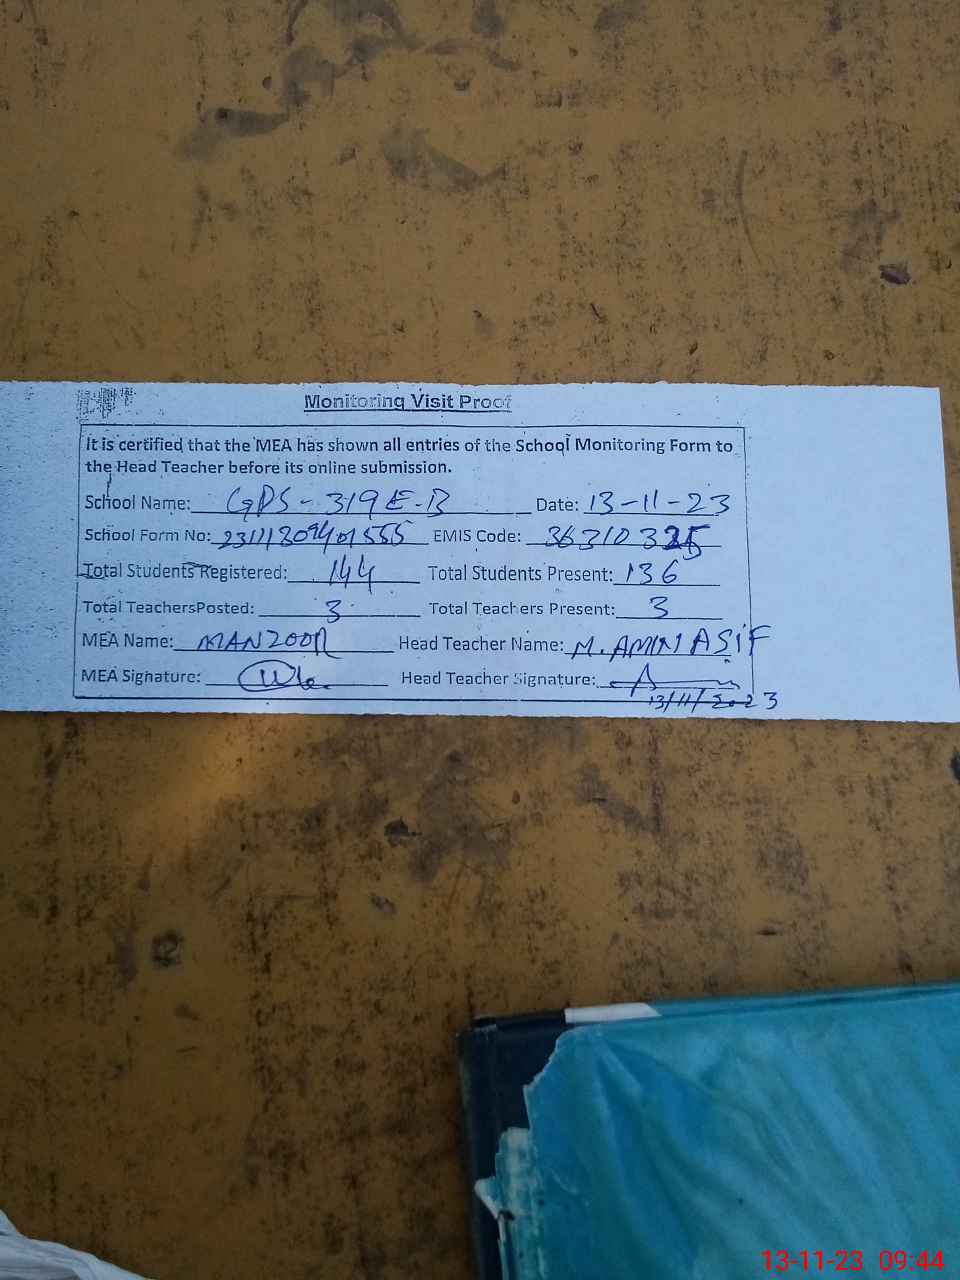 Monitoring Visit Proof
It is certified that the MEA has shown all entries of the School Monitoring Form to
the Head Teacher before its online submission.
School Name: GPS - 319 E-B Date: 13-11-23
School Form No: EMIS Code: 36310325
Total Students Registered: 144 Total Students Present: 136
Total TeachersPosted: 3 Total Teachers Present: 3
MEA Name: MANZOOR Head Teacher Name: M. AMIN ASIF
MEA Signature: Head Teacher Signature:
13/11/2023
13-11-23 09:44